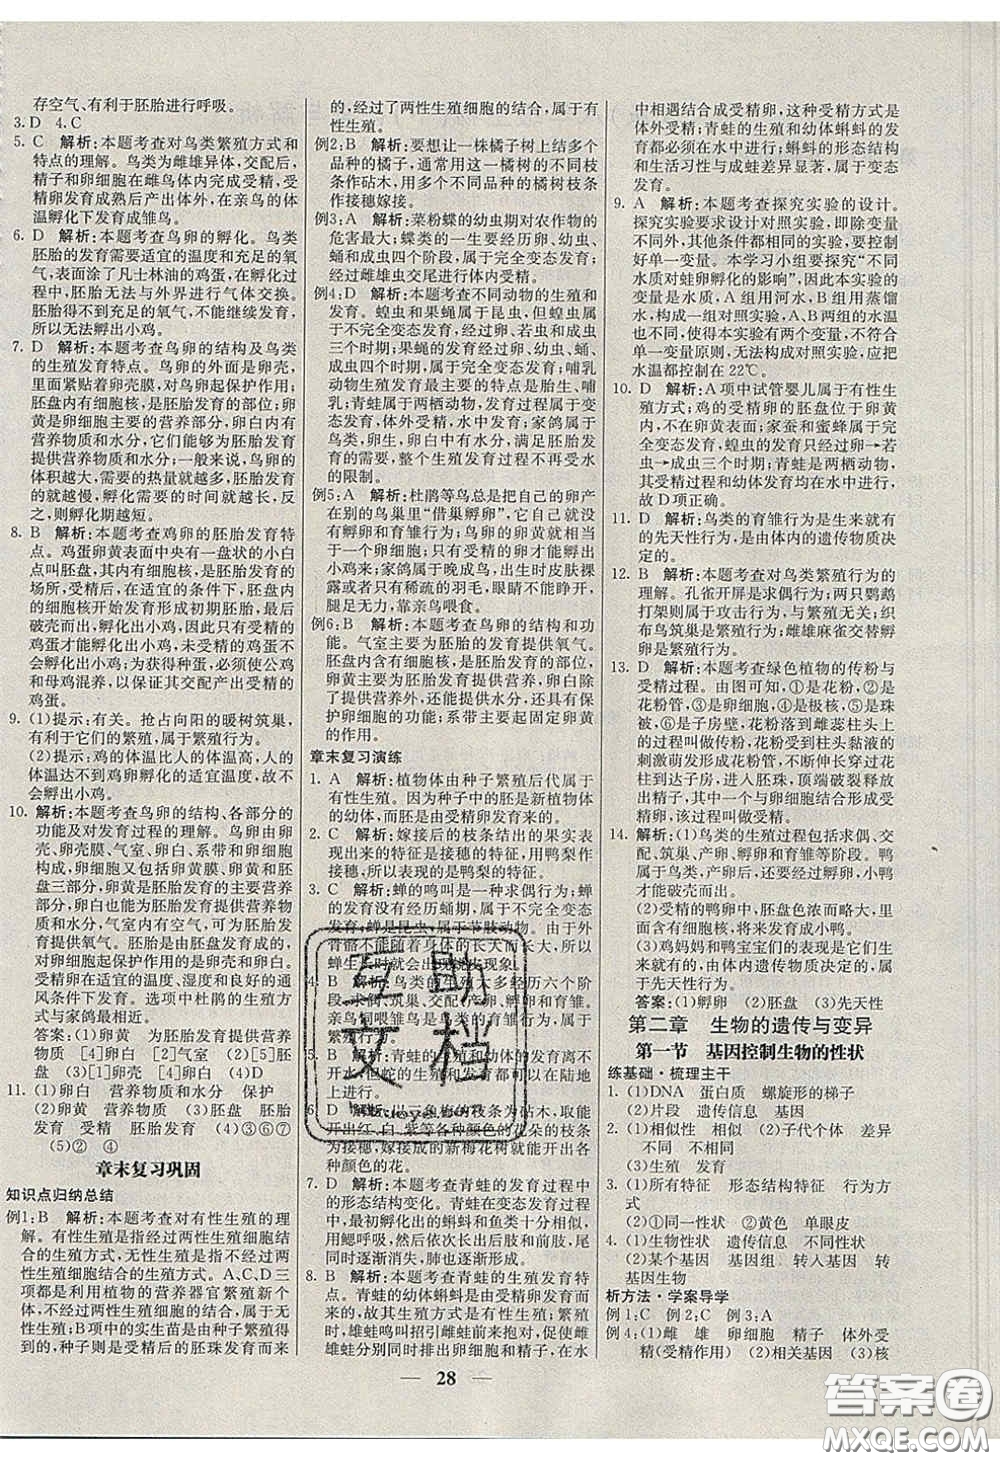 存空气、有利于胚胎进行呼吸。
3. D  4. C
5. C  解析:本题考查对鸟类繁殖方式和
特点的理解。鸟类为雌雄异体,交配后,
精子和卵细胞在雌鸟体内完成受精,受
精卵发育成熟后产出体外,在亲鸟的体
温孵化下发育成雏鸟。
6. D  解析:本题考查鸟卵的孵化。鸟类
胚胎的发育需要适宜的温度和充足的氧
气,表面涂了凡士林油的鸡蛋,在孵化过
程中,胚胎无法与外界进行气体交换。
胚胎得不到充足的氧气,不能继续发育,
所以无法孵出小鸡。
7. D  解析:本题考查鸟卵的结构及鸟类
的生殖发育特点。鸟卵的外面是卵壳,
里面紧贴着卵壳膜,对卵起保护作用;
胚盘内有细胞核,是胚胎发育的部位;卵
黄是卵细胞的主要营养部分,卵白内有
营养物质和水分,它们能够为胚胎发育
提供营养物质和水分;一般来说,鸟卵的
体积越大,需要的热量就越多,胚胎发育
就越慢,孵化需要的时间就越长,反
之,则孵化期越短。
8. B  解析:本题考查鸡卵的胚胎发育特
点。鸡蛋卵黄表面中央有一盘状的小白
点叫胚盘,内有细胞核,是胚胎发育的
场所,受精后,在适宜的条件下,胚盘内
的细胞核开始发育形成初期胚胎,最后
破壳而出成为小鸡,因此只有受精的
鸡蛋才能孵化出小鸡,未受精的鸡蛋不
能孵化出小鸡;为获得种蛋,必须使公鸡
和母鸡混养,以保证其交配产出受精的
鸡蛋。
9. (1)提示:有关。抢占向阳的暖树筑巢,
有利于它们的繁殖,属于繁殖行为。
(2)提示:鸡的体温比人的体温高,人的
体温达不到鸡卵孵化的适宜温度,故不
能孵化出小鸡。
10. 解析:本题考查鸟卵的结构、各部分的
功能及对发育过程的理解。鸟卵由卵
壳、卵壳膜、气室、卵白、系带和卵细胞
构成,卵细胞又包括卵黄膜、卵黄和胚
盘三部分,卵黄为胚胎发育提供营养物
质,卵白也能为胚胎发育提供营养物质
和水分,气室内有空气,可为胚胎发育
提供氧气。胚胎是由胚盘发育成的,
对卵细胞起保护作用的是卵壳和卵白。
受精卵在适宜的温度、湿度和良好的通
风条件下发育。选项中杜鹃的生殖方式
与家鸽最相近。
答案:(1)卵黄  为胚胎发育提供营养
物质  [4]卵白  [2]气室  [5]胚盘
[3]卵黄  [1]卵壳  [4]卵白  (4)D
11. (1)卵白  营养物质和水分  保护
(2)卵黄  营养物质  (3)胚盘  胚胎
发育  受精  胚胎发育  (4)③⑥⑦
(5)②  ④
章末复习巩固
知识点归纳总结
例1:B  解析:本题考查对有性生殖的理
解。有性生殖是指经过两性生殖细胞
结合的生殖方式,无性生殖是指不经过两
性生殖细胞结合的生殖方式。A、C、D三
项都是利用植物的营养器官繁殖新个
体,不经过两性生殖细胞的结合,属于无性
生殖;B项中的实生苗是由种子发育而来
得到的,种子则是受精后的胚珠发育而来
的,经过了两性生殖细胞的结合,属于有
性生殖。
例2:B  解析:要想让一株橘子树上结多个
品种的橘子,通常用这一橘树的不同枝
条作砧木,用多个不同品种的橘树枝条作
接穗嫁接。
例3:A  解析:菜粉蝶的幼虫期对农作物的
危害最大;蝶类的一生要经历卵、幼虫、
蛹和成虫四个阶段,属于完全变态发育;
经过雌雄虫交尾进行体内受精。
例4:D  解析:本题考查不同动物的生殖和
发育。蝗虫和果蝇属于昆虫,但蝗虫的
发育经过卵、若虫、成虫三个阶段,属于不
完全变态发育;果蝇的发育经过卵、幼虫、蛹、
成虫四个时期,属于完全变态发育;哺乳
动物生殖发育最主要的特点是胎生、哺
乳;青蛙属于两栖动物,发育过程属于变
态发育,生殖发育都离不开水;家鸽属于
鸟类,卵生,卵白中有水分,满足胚胎发
育的需要,整个生殖发育过程不再受水
的限制。
例5:A  解析:杜鹃等鸟总是把自己的卵产
在别的鸟巢里"借巢孵卵",这属于鸟类
的繁殖行为;没有受精的鸟卵的卵黄就相当
于一个卵细胞;只有受精的卵才能孵出
小鸡来;家鸽属于晚成鸟,出生时皮肤裸
露或只有稀疏的羽毛,眼睛不能睁开,
腿足无力,靠亲鸟喂食。
例6:B  解析:本题考查鸟卵的结构和功
能。气室主要为胚胎的发育提供氧气。
胚盘内有细胞核,是胚胎发育的部位,
卵黄为胚胎的发育提供营养。卵白除了
提供营养外,还能提供水分,还具有保
护卵细胞的功能;系带主要起固定卵黄的
作用。
章末复习演练
1. A  解析:植物体由种子繁殖后代属于
有性生殖。因为种子中的胚是新植物体
的幼体,而胚是由受精卵发育来的。
2. C  解析:嫁接后的枝条结出的果实表
现出来的特征是接穗的特征,用鸭梨作
接穗,所以表现的是鸭梨的特征。
3. C  解析:蝉的鸣叫是一种求偶行为;蝉
的发育没有经历蛹期,属于不完全变态
发育;蝉是昆虫,属于节肢动物。由于外
骨骼不能随着身体的长大而长大,所以
蝉生长过程中会出现蜕皮现象。
4. C  解析:鸟类的生殖大多经历六个阶
段:求偶、筑巢、交配、产卵、孵卵和育雏。
亲鸟饲喂雏鸟,是鸟类的育雏行为,属于
繁殖行为。
5. C  解析:青蛙的生殖和发育离不
开水,但蛇的生殖和发育都可以在陆地
上进行。
6. D  解析:以三角梅的枝条为砧木,在砧木上嫁
开出红、白、紫等各种颜色的花朵的枝条为
接穗,嫁接成活的新梅花树开出各种
颜色的花。
7. D  解析:青蛙的发育过程中
的形态结构变化。青蛙在变态发育过程
中,最初孵化出的蝌蚪和鱼类十分相似,
用鳃呼吸,然后依次长出后肢、前肢,
同时尾巴逐渐消失,肺也逐渐形成。
8. B  解析:本题考查青蛙的生殖发育特
点。青蛙的幼体蝌蚪是由受精卵发育而
来的,故其生殖方式是有性生殖;繁殖
时,雄蛙鸣叫招引雌蛙前来抱对,促使雌
雄蛙分别同时排出卵细胞和精子,在水
中相遇结合成受精卵,这种受精方式是
体外受精;青蛙的生殖和幼体蝌蚪的发
育都必须在水中进行;蝌蚪的形态结构
和生活习性与成蛙差异显著,属于变态
发育。
9. A  解析:本题考查探究实验的设计。
探究实验要求设计对照实验,即除变量
不同外,其他条件都相同的实验,要控制
好单一变量。本学习小组要探究"不同
水质对蛙卵孵化的影响",因此本实验的
变量是水质,A组用河水,B组用蒸馏
水,构成一组对照实验。A、B两组的水温
也不同,使得本实验有两个变量,不符合
单一变量原则,无法构成对照实验,应把
水温都控制在22℃。
10. D  解析:A项中试管婴儿属于有性生
殖方式;鸡的受精卵的胚盘位于卵黄
内,不在卵黄表面;家蚕和蜜蜂都属于
完全变态发育,蝗虫的发育只经过卵→若
虫→成虫三个时期;青蛙是两栖动物,其
体外受精和幼体发育均在水中进行,
故D项正确。
11. D  解析:鸟类的育雏行为是生来就有
的先天性行为,是由体内的遗传物质决
定的。
12. B  解析:本题考查对鸟类繁殖行为的
理解。孔雀开屏属于求偶行为;两只鹦鹉
打架则属于攻击行为,与繁殖无关;织
布鸟筑巢属于繁殖行为;雌雄麻雀交替孵
卵是繁殖行为。
13. D  解析:本题考查绿色植物的传粉与
受精过程。由图可知,①是花粉,②是
花粉管,③是卵细胞,④是极核,⑤是珠
被,⑥是子房壁,花粉落到雌蕊柱头上
的过程叫传粉;花粉受到柱头黏液的
刺激萌发形成花粉管,花粉管穿过花柱,一
直到达子房,进入胚珠,顶端破裂释放出
精子,精子与卵细胞结合形成受精卵,
该过程叫做受精。
14. 解析:(1)鸟类的生殖过程包括求偶、交
配、筑巢、产卵、孵卵和育雏等行为。鸭
卵属于大型卵,必须经过孵卵阶段,小鸭
才能破壳而出。
(2)受精的鸭卵,胚盘色浓而略大,里
面含有细胞核,将来发育成小鸭。
(3)鸡妈妈和鸭宝宝们的表现是它们生
来就有的,由体内遗传物质决定的行为,
属于先天性行为。
答案:(1)孵卵  (2)胚盘  (3)先天性
第二章  生物的遗传与变异
第一节  基因控制生物的性状
练基础·梳理主干
1. (1)DNA  蛋白质  螺旋形的梯子
(2)片段  遗传信息  基因
2. (1)相似性  相似  (2)子代个体  差异
不同  不相同
(3)生殖  发育
3. (1)所有特征  形态结构特征  行为方
式  (2)①同一性状  ②黄色  单眼皮
4. (1)生物性状  遗传信息  不同形式
(2)某个基因  基因组  转入基因  转
基因生物
析方法·学案导学
例1:C  例2:C  例3:A
例4:(1)雌  雄  卵细胞  精子  体外受
精(受精作用)  (2)相关基因  (3)核
28
互助文档
答案圈
MXQE.COM